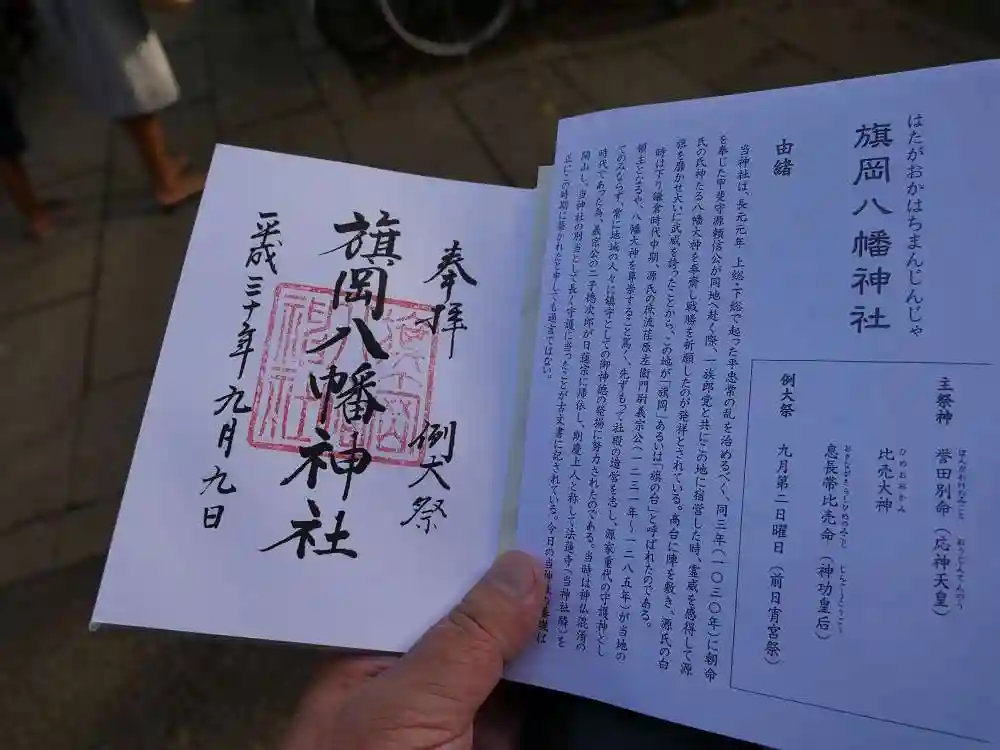 はたがおかはちまんじんじゃ
旗岡八幡神社
由緒
当神社は、長元元年 上総・下総で起った平忠常の乱を治めるべく、同三年(一〇三〇年)に朝命
を奉じた甲斐守源頼信公が同地へ赴く際、一族郎党と共にこの地に宿営した時、霊威を感得して源
氏の氏神たる八幡大神を奉斎し戦勝を祈願したのが発祥とされている。高台に陣を敷き、源氏の白
旗を靡かせ大いに武威を誇ったことから、この地が「旗岡」あるいは「旗の台」と呼ばれたのである。
時は下り鎌倉時代中期、源氏の庶流荏原左衛門尉義宗公(一二三一年~一二八五年)が当地の
領主となるや、八幡大神を尊崇すること篤く、先ずもって社殿の造営を志し、源家重代の守護神とし
てのみならず、常に地域の人々に鎮守としての御神徳の発揚に努力されたのである。当時は神仏混淆の
時代であった為、義宗公の二子徳次郎が日蓮宗に帰依し、朗慶上人と称して法蓮寺(当神社隣)を
開山し、当神社の別当として長く守護に当ったことが古文書に記されている。今日の当神社の基礎は
正にこの時期に築かれたと申しても過言ではない。
主祭神 誉田別命(応神天皇)
ほんだわけのみこと おうじんてんのう
比売大神
ひめおおかみ
息長帯比売命(神功皇后)
おきながたらしひめのみこと じんぐうこうごう
例大祭 九月第二日曜日(前日宵宮祭)
奉拝 例大祭
旗岡八幡神社
平成三十年九月九日